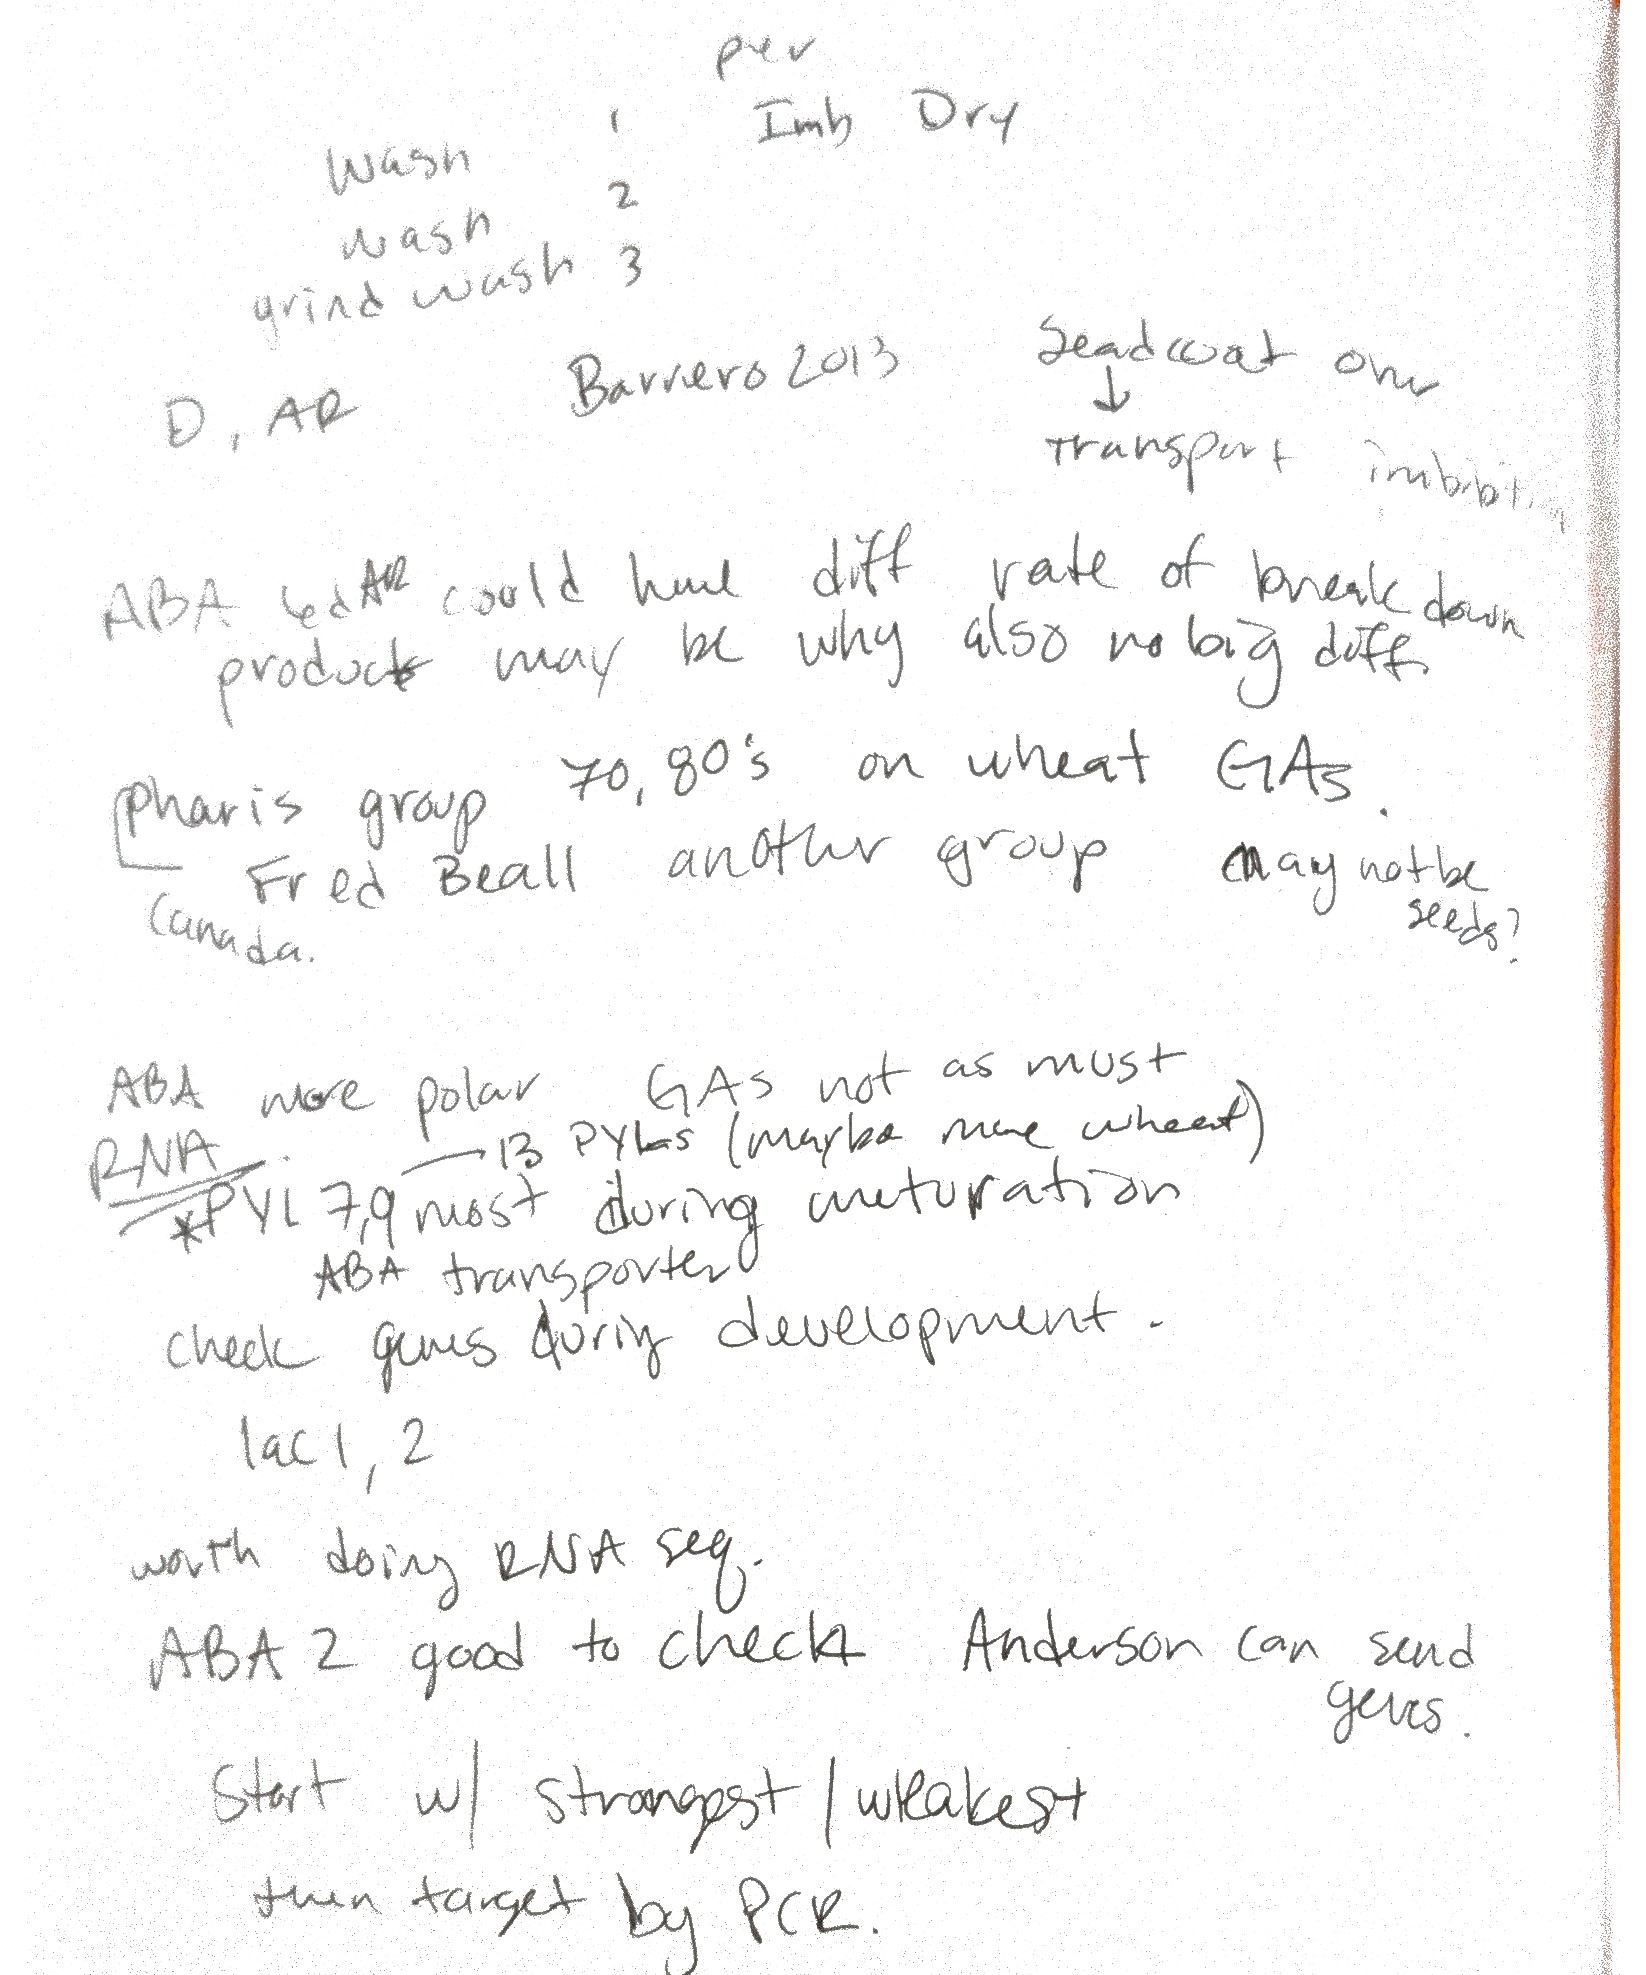 per
Imb Dry
wash 1
wash 2
grind wash 3
D, AR Barrero 2013 Seadcoat over
↓
transport imbibition
ABA 6d AR could have diff rate of break down
products may be why also no big diff.
Pharis group 70, 80's on wheat GAs.
Fred Beall another group may not be
seeds?
Canada.
ABA more polar GAs not as must
RNA. → 13 PYLs (maybe more wheat)
*PYL 7,9 most during maturation
ABA transporter
check genes during development.
lac 1, 2
worth doing RNA seq.
ABA 2 good to check Anderson can send
genes.
Start w/ strongest / weakest
then target by PCR.